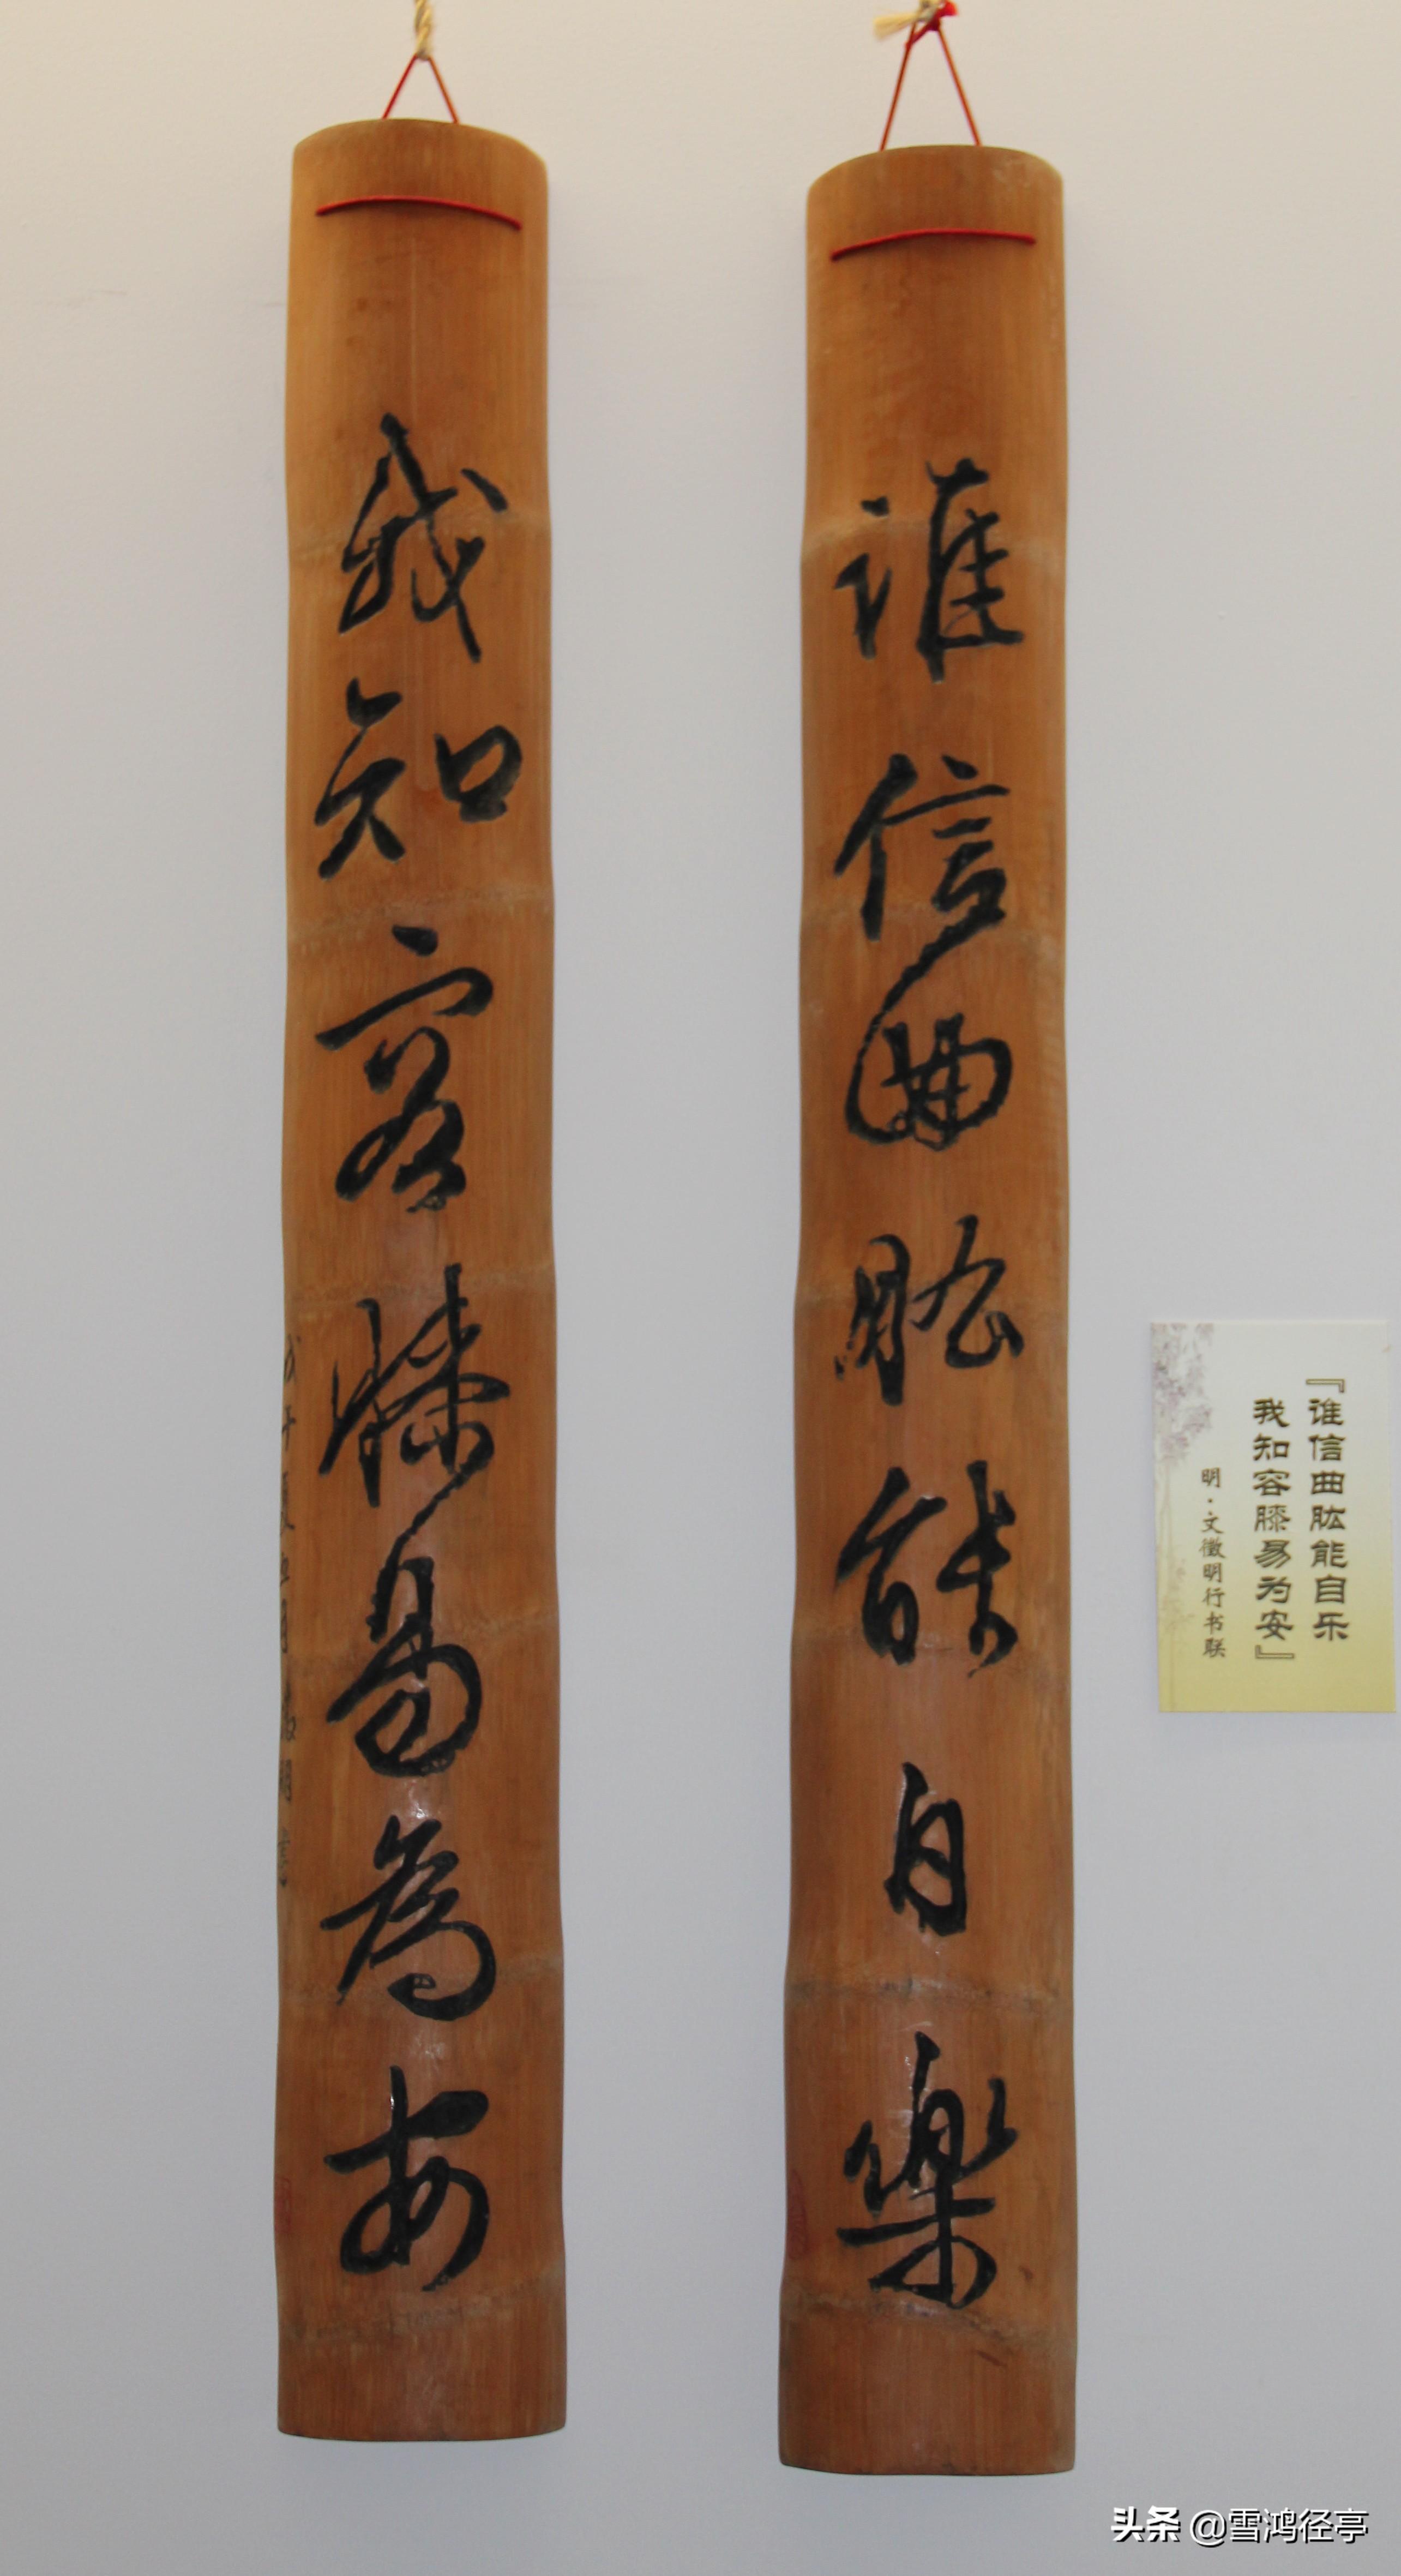 誰信曲肱能自樂
我知容膝易為安
『谁信曲肱能自乐
我知容膝易为安』
明·文徵明行书联
头条 @雪鸿径亭